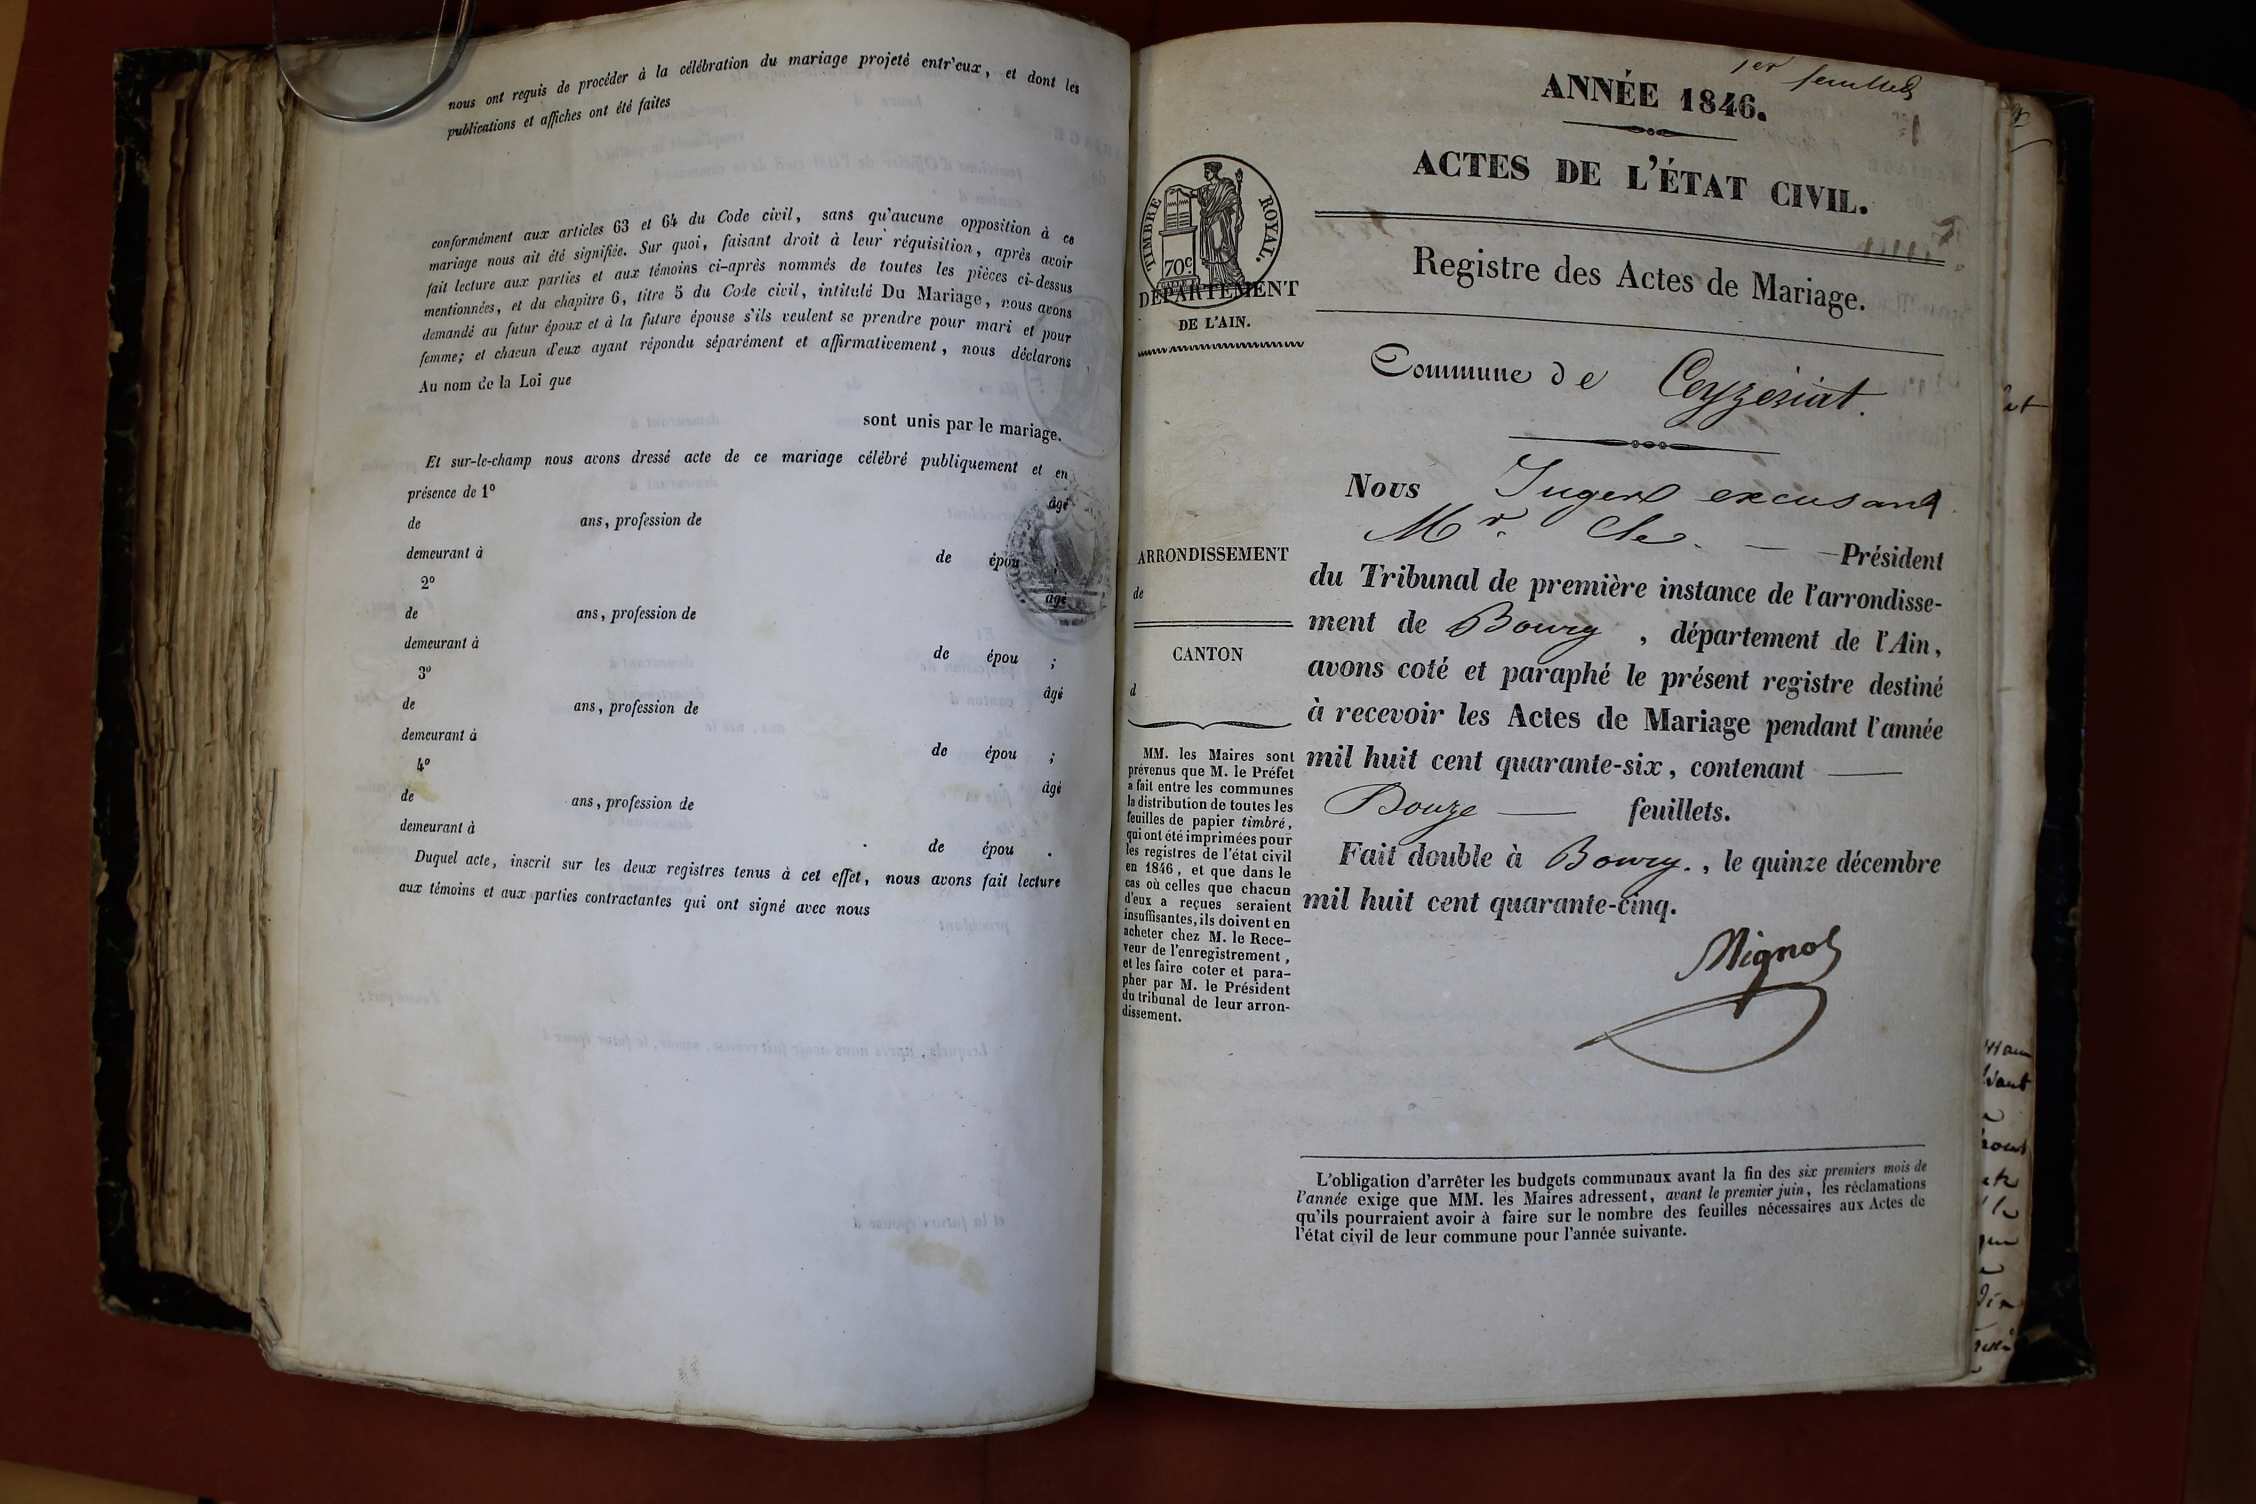 nous ont requis de procéder à la célébration du mariage projeté entr'eux, et dont les
publications et affiches ont été faites
conformément aux articles 63 et 64 du Code civil, sans qu'aucune opposition à ce
mariage nous ait été signifiée. Sur quoi, faisant droit à leur réquisition, après avoir
fait lecture aux parties et aux témoins ci-après nommés de toutes les pièces ci-dessus
mentionnées, et du chapitre 6, titre 5 du Code civil, intitulé Du Mariage, nous avons
demandé au futur époux et à la future épouse s'ils veulent se prendre pour mari et pour
femme; et chacun d'eux ayant répondu séparément et affirmativement, nous déclarons
Au nom de la Loi que
sont unis par le mariage.
Et sur-le-champ nous avons dressé acte de ce mariage célébré publiquement et en
présence de 1º âgé
de ans, profession de
demeurant à de épou ;
2º âgé
de ans, profession de
demeurant à de épou ;
3º âgé
de ans, profession de
demeurant à de épou ;
4º âgé
de ans, profession de
demeurant à de épou .
Duquel acte, inscrit sur les deux registres tenus à cet effet, nous avons fait lecture
aux témoins et aux parties contractantes qui ont signé avec nous
1er feuillet
ANNÉE 1846.
ACTES DE L'ÉTAT CIVIL.
TIMBRE ROYAL.
70c
DÉPARTEMENT
DE L'AIN.
Registre des Actes de Mariage.
Commune de Ceyzeriat.
Nous Juger excusant
Mr. Che. — Président
ARRONDISSEMENT
de
du Tribunal de première instance de l'arrondisse-
ment de Bourg, département de l'Ain,
CANTON
d
avons coté et paraphé le présent registre destiné
à recevoir les Actes de Mariage pendant l'année
mil huit cent quarante-six, contenant —
Douze — feuillets.
Fait double à Bourg., le quinze décembre
mil huit cent quarante-cinq.
Mignot
MM. les Maires sont
prévenus que M. le Préfet
a fait entre les communes
la distribution de toutes les
feuilles de papier timbré,
qui ont été imprimées pour
les registres de l'état civil
en 1846, et que dans le
cas où celles que chacun
d'eux a reçues seraient
insuffisantes, ils doivent en
acheter chez M. le Rece-
veur de l'enregistrement,
et les faire coter et para-
pher par M. le Président
du tribunal de leur arron-
dissement.
L'obligation d'arrêter les budgets communaux avant la fin des six premiers mois de
l'année exige que MM. les Maires adressent, avant le premier juin, les réclamations
qu'ils pourraient avoir à faire sur le nombre des feuilles nécessaires aux Actes de
l'état civil de leur commune pour l'année suivante.